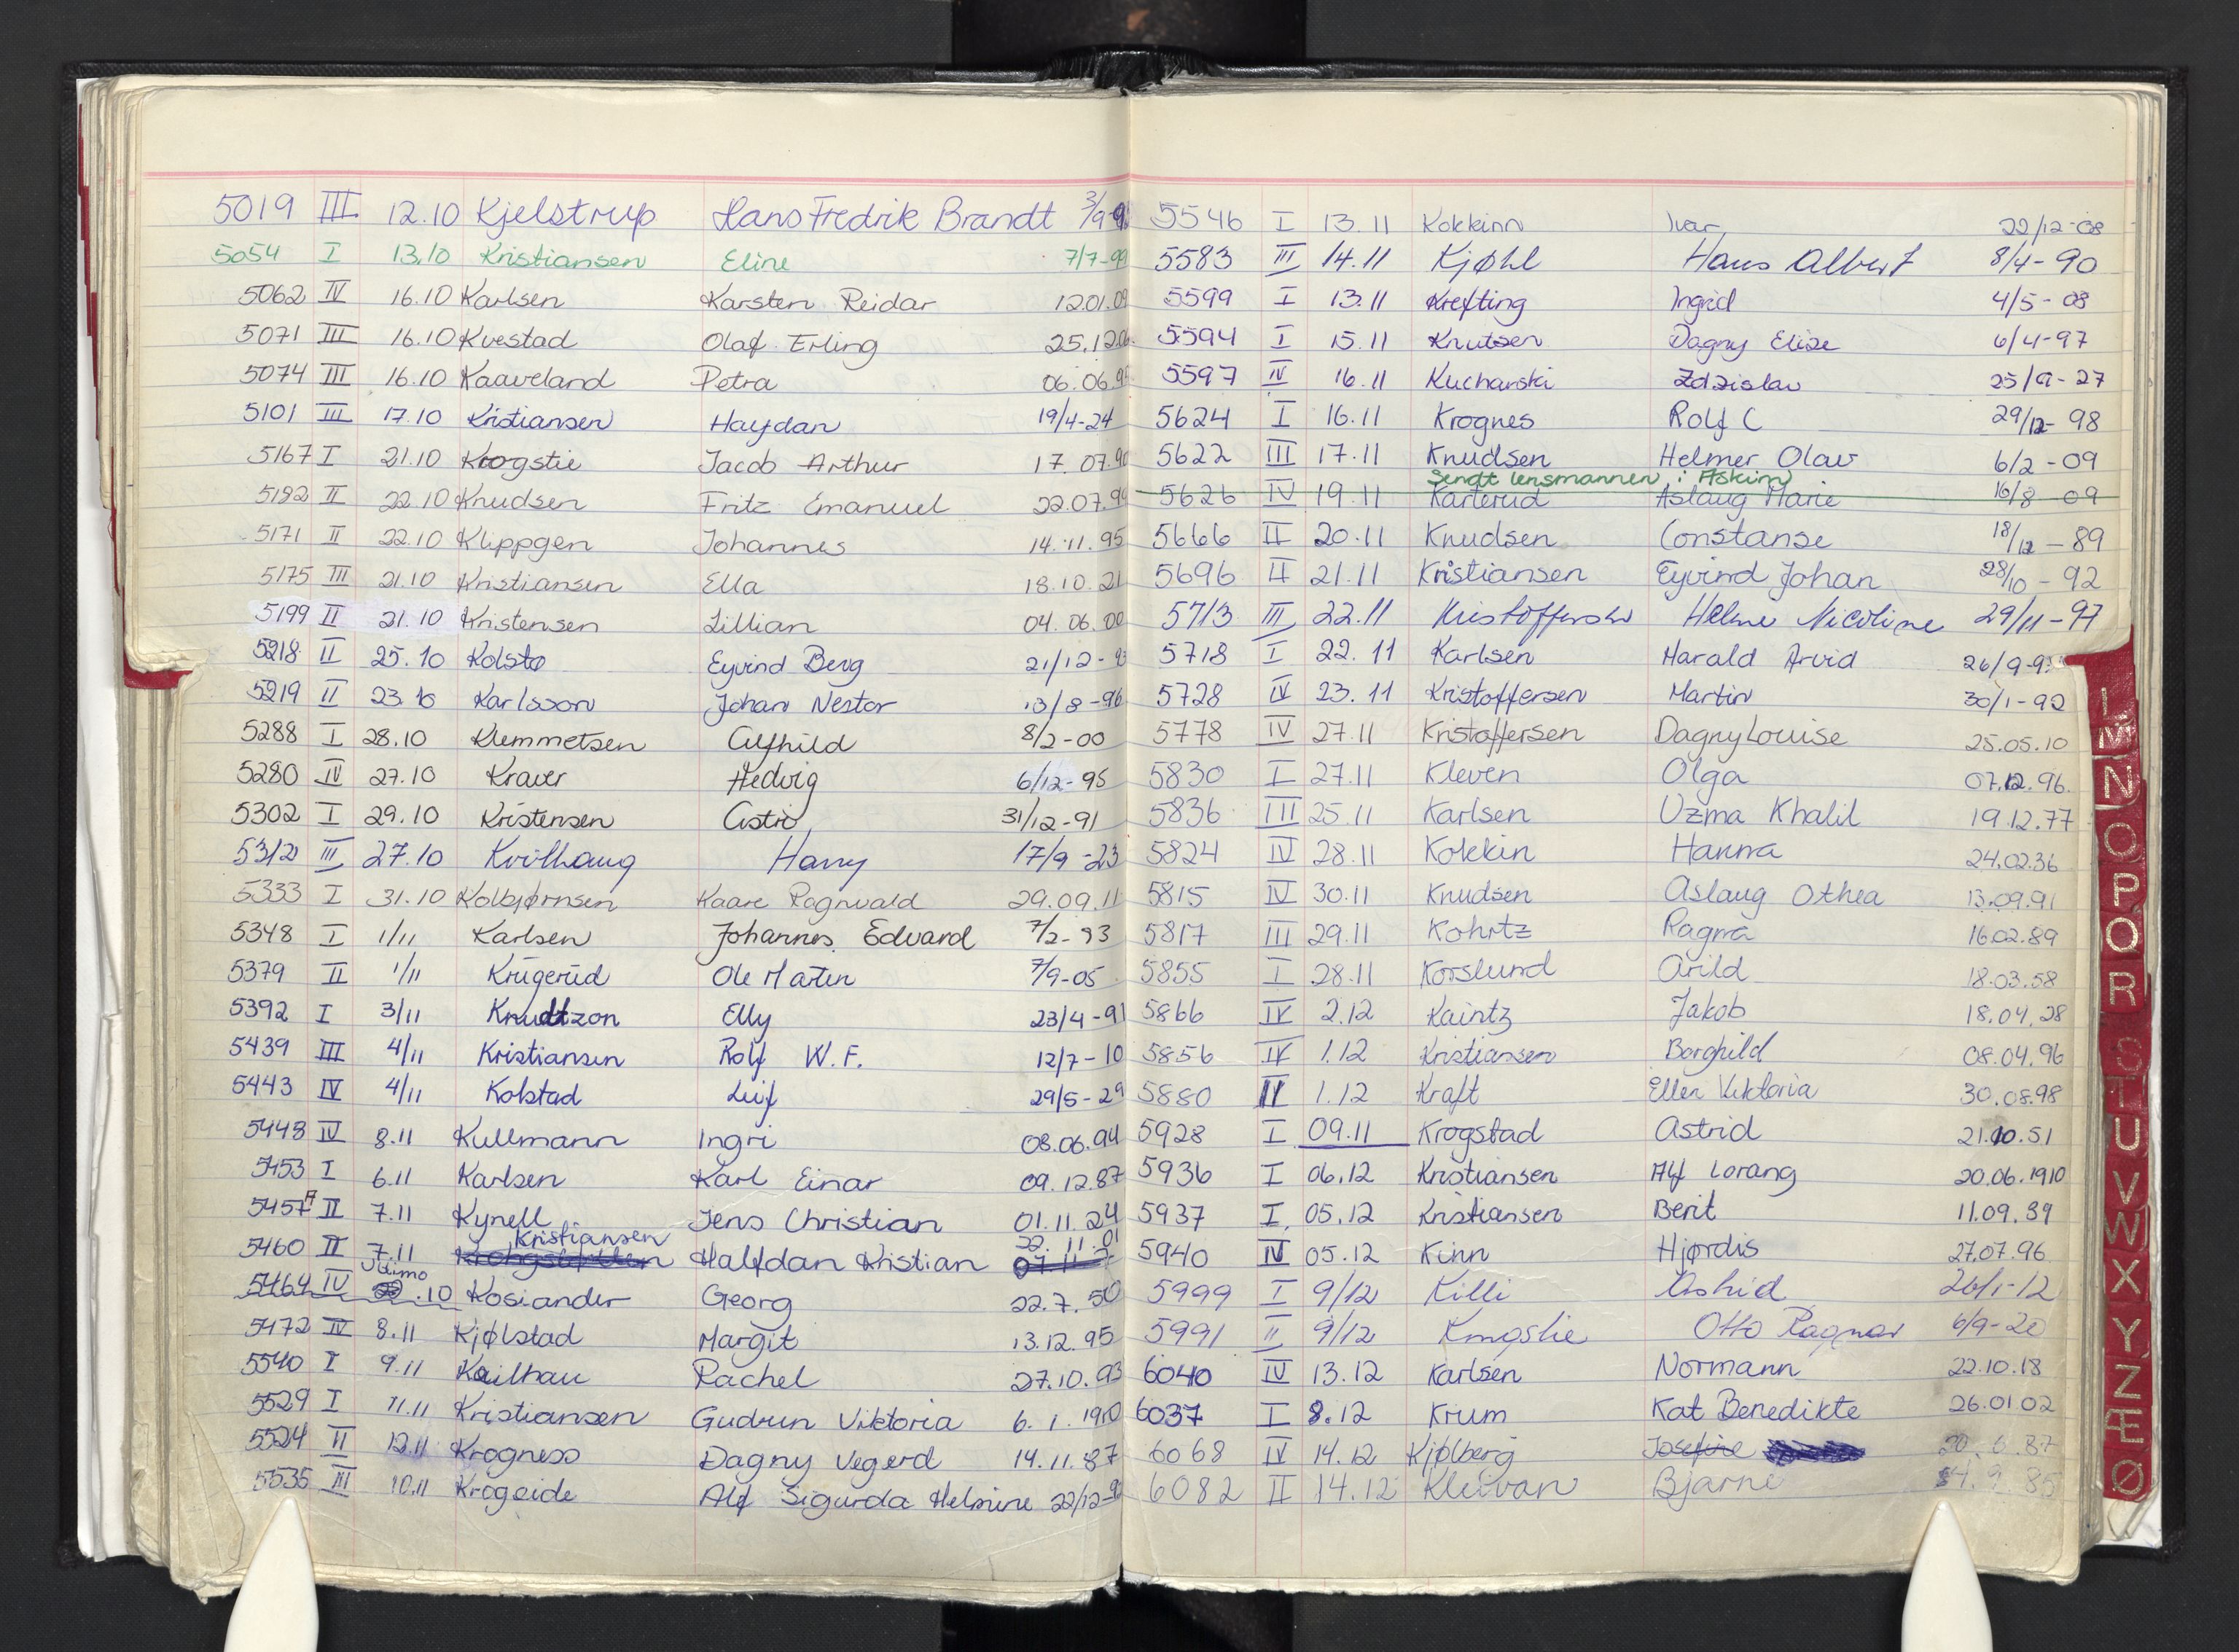 5019 III 12.10 Kjelstrup Hans Fredrik Brandt 3/9-9
5054 I 13.10 Kristiansen Eline 7/7-99
5062 IV 16.10 Karlsen Karsten Reidar 12.01.09
5071 III 16.10 Kvestad Olaf Erling 25.12.06.
5074 III 16.10 Kaaveland Petra 06.06.9
5101 III 17.10 Kristiansen Haydan 19/4-24
5167 I 21.10 Krogstie Jacob Arthur 17.07.90
5182 II 22.10 Knudsen Fritz Emanuel 22.07.94
5171 II 22.10 Klippgen Johannes 14.11.95
5175 III 21.10 Kristiansen Ella 18.10.21
5199 II 21.10 Kristensen Lillian 04.06.00
5218 II 25.10 Kolstø Eyvind Berg 21/12-93
5219 II 23.10 Karlsson Johan Nestor 13/8-96
5288 I 28.10 Klemmetsen Alfhild 8/2-00
5280 IV 27.10 Kraver Hedvig 6/12-95
5302 I 29.10 Kristensen Astri 31/12-91
5312 III 27.10 Kvilhaug Harry 17/9-23
5333 I 31.10 Kolbjørnsen Kaare Ragnvald 29.09.11
5348 I 1/11 Karlsen Johannes Edvard 7/2-93
5379 II 1/11 Krügerud Ole Martin 7/9-05
5392 I 3/11 Knudtzon Elly 23/4-91
5439 III 4/11 Kristiansen Rolf W.F. 12/7-10
5443 IV 4/11 Kolstad Leif 29/5-29
5448 IV 8.11 Kullmann Ingri 08.06.94
5453 I 6.11 Karlsen Karl Einar 09.12.87
5457 A II 7.11 Kynell Jens Christian 01.11.24
Kristiansen 22.11.01
5460 II 7.11 Halfdan Kristian
Ultimo
5464 IV .10 Kosiander Georg 22.7.50
5472 IV 8.11 Kjølstad Margit 13.12.95
5540 I 9.11 Kailhau Rachel 27.10.93
5529 I 11.11 Kristiansen Gudrun Viktoria 6.1.1910
5524 II 12.11 Krogness Dagny Vegerd 14.11.87
5535 III 10.11 Krogeide Alf Sigurda Helmine 22/12-90
5546 I 13.11 Kokkinn Ivar 22/12-08
5583 III 14.11 Kjøhl Hans Albert 8/4-90
5599 I 13.11 Krefting Ingrid 4/5-08
5594 I 15.11 Knutsen Dagny Elise 6/4-97
5597 IV 16.11 Kucharski Zdzislav 25/9-27
5624 I 16.11 Krognes Rolf C 29/12-98
5622 III 17.11 Knudsen Helmer Olav 6/2-09
Sendt lensmannen i Askim
5626 IV 19.11 Karterud Aslaug Marie 16/8-09
5666 II 20.11 Knudsen Constanse 18/12-89
5696 II 21.11 Kristiansen Eyvind Johan 28/10-92
5713 III 22.11 Kristoffersen Helene Nicoline 29/11-97
5718 I 22.11 Karlsen Harald Arvid 26/9-9
5728 IV 23.11 Kristoffersen Martin 30/1-92
5778 IV 27.11 Kristoffersen Dagny Louise 25.05.10
5830 I 27.11 Kleven Olga 07.12.96.
5836 III 25.11 Karlsen Uzma Khalil 19.12.77
5824 IV 28.11 Kokkin Hanna 24.02.36
5815 IV 30.11 Knudsen Aslaug Othea 13.09.91
5817 III 29.11 Kohrtz Ragna 16.02.89
5855 I 28.11 Korslund Arild 18.03.58
5866 IV 2.12 Kaintz Jakob 18.04.28
5856 IV 1.12 Kristiansen Borghild 08.04.96
5880 IV 1.12 Kraft Ellen Viktoria 30.08.98
5928 I 09.11 Krogstad Astrid 21.10.51
5936 I 06.12 Kristiansen Alf Lorang 20.06.1910
5937 I 05.12 Kristiansen Berit 11.09.39
5940 IV 05.12 Kinn Hjørdis 27.07.96
5999 I 9/12 Killi Astrid 26/1-12
5991 II 9/12 Kingslie Otto Ragnar 6/9-20
6040 IV 13.12 Karlsen Normann 22.10.18
6037 I 8.12 Krum Kat Benedikte 26.01 02
6068 IV 14.12 Kjølberg Josefine 20.6.87
6082 II 14.12 Kleivan Bjarne 4.9 85
M
N
O
P
Q
R
S
T
U
V
W
X
Y
Z
Æ
Ø